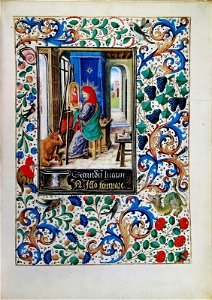 Secundū lucam
In illo tempore